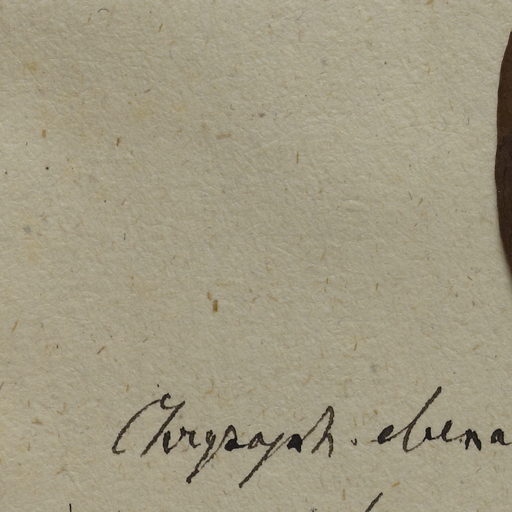 Chrysoph. ebena